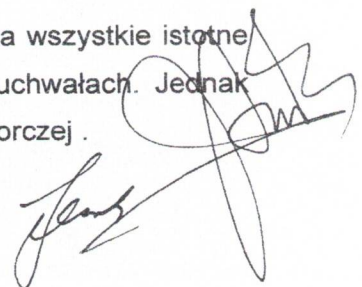 a wszystkie istotne
uchwałach. Jednak
orczej .